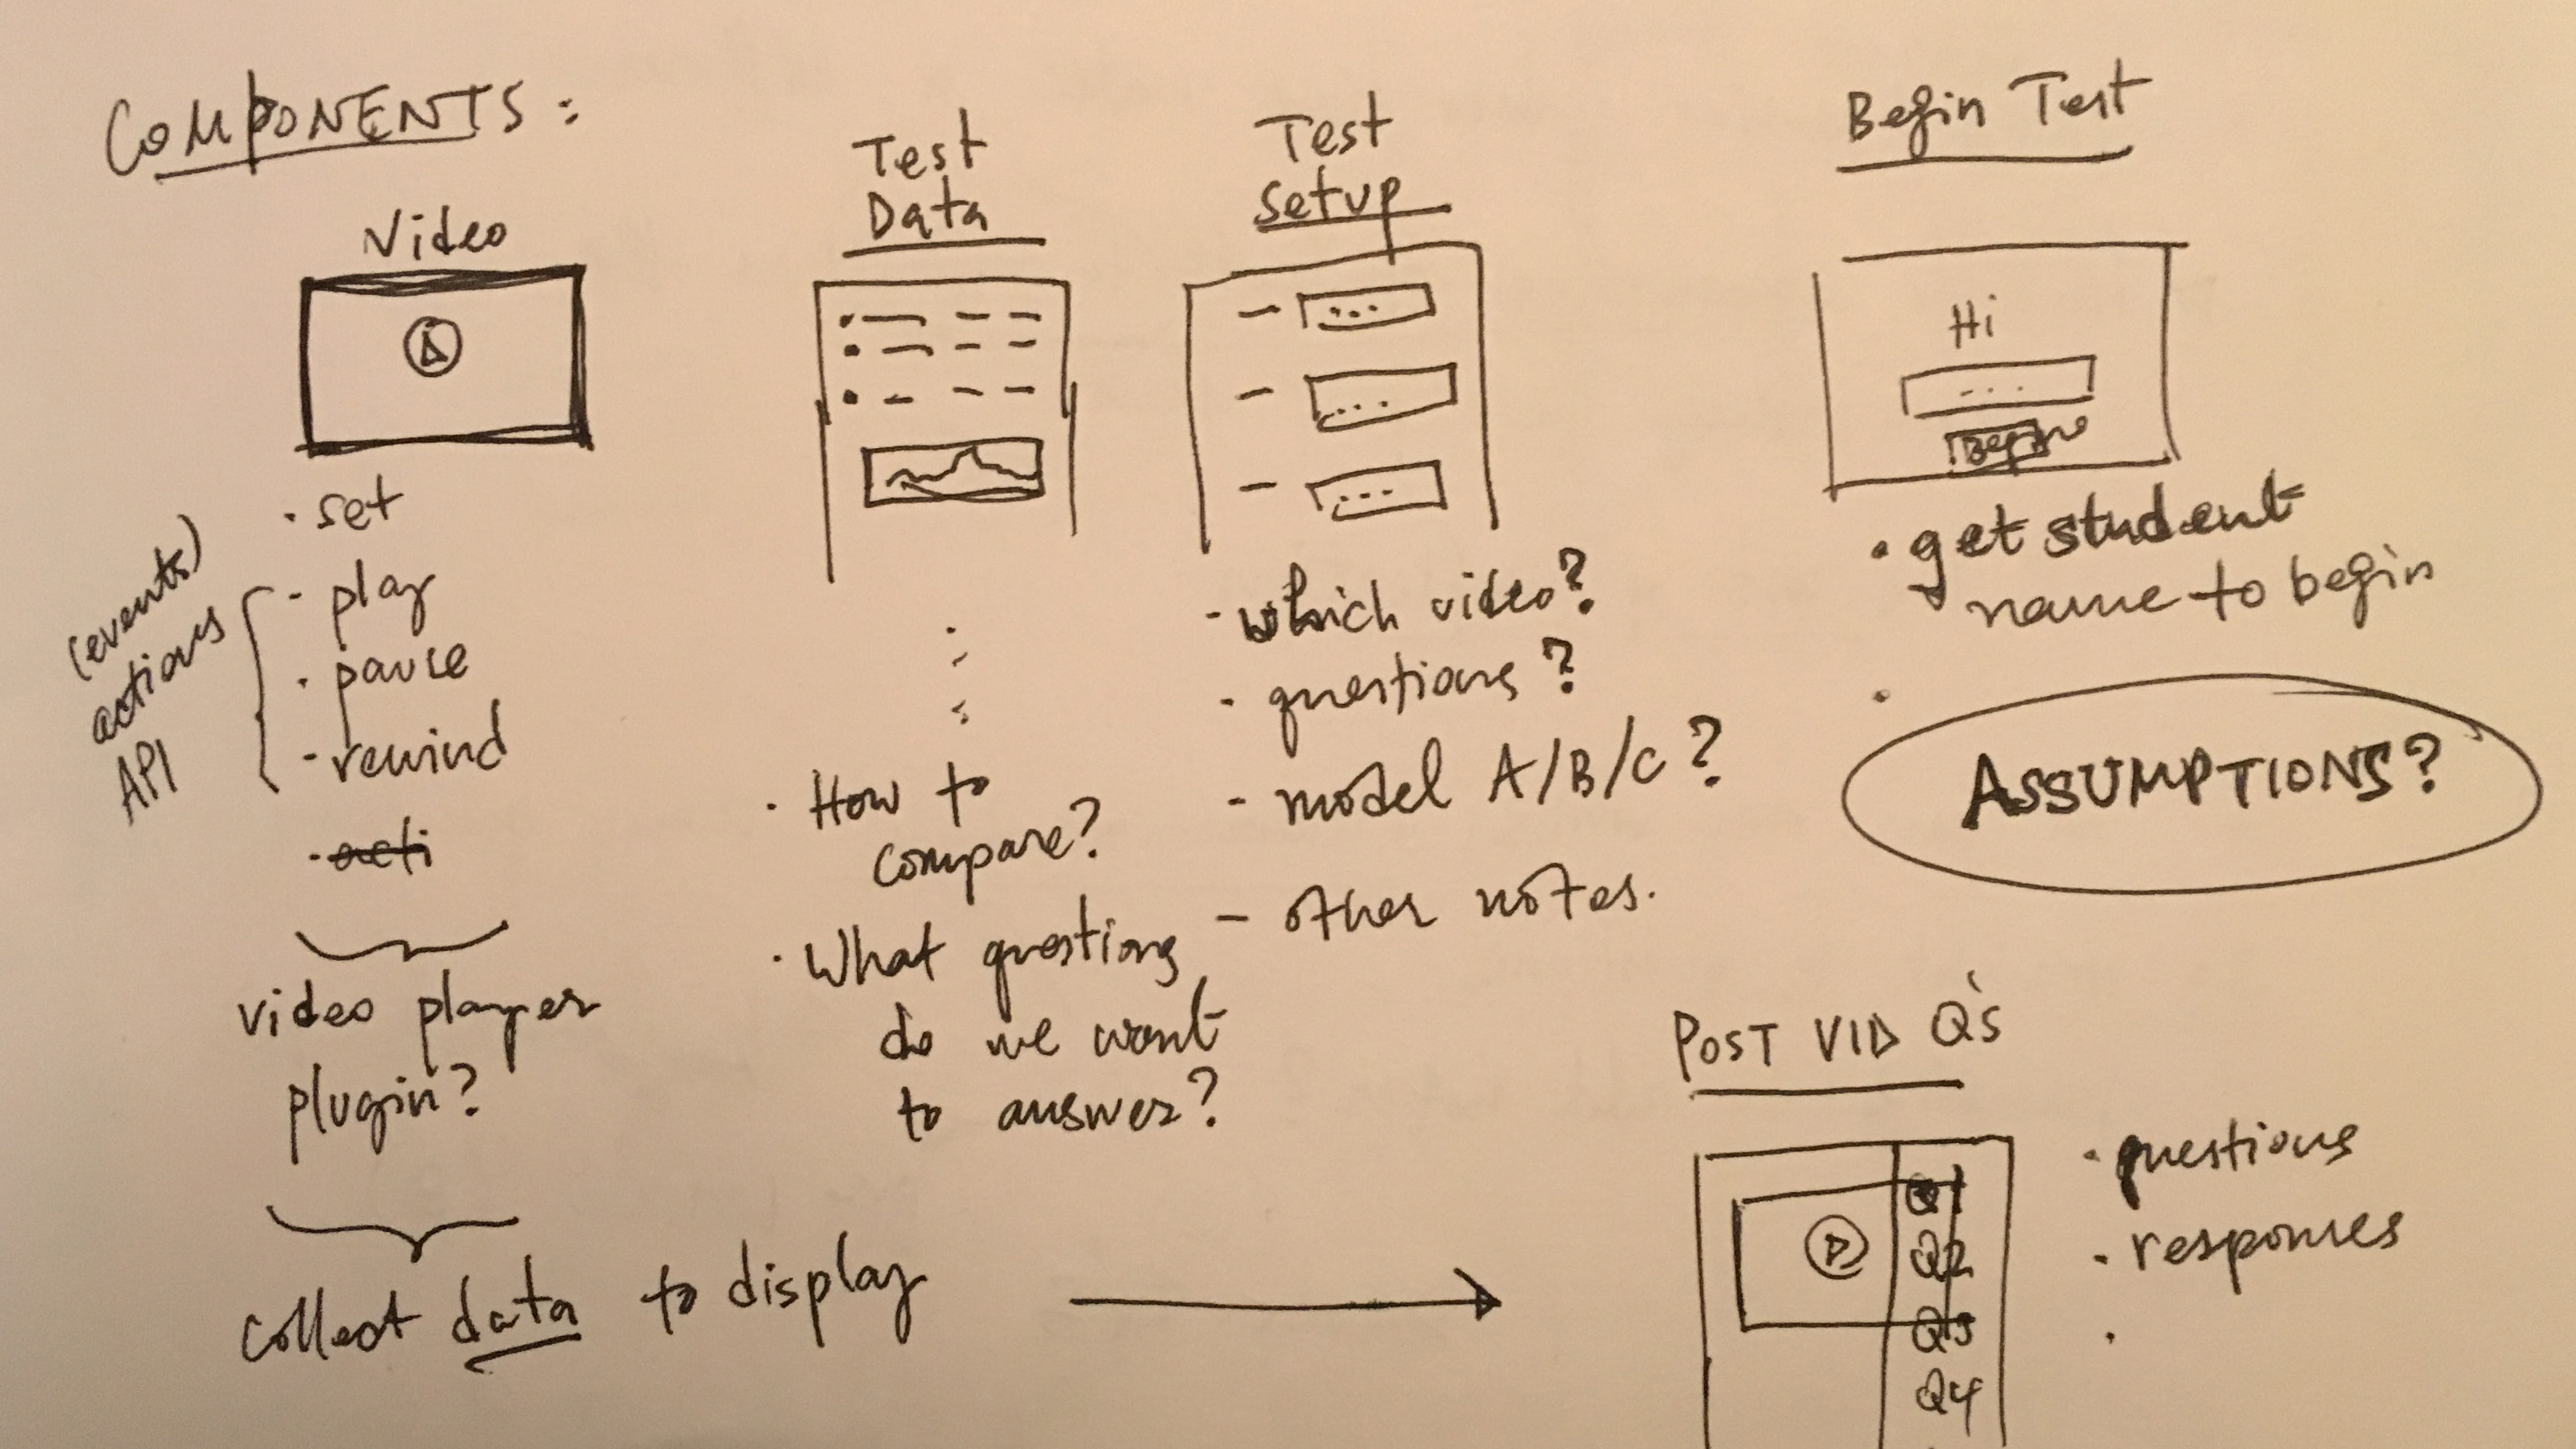 COMPONENTS:
Video
· set
- play
· pause
- rewind
· acti
(events)
actions
API
video player
plugin?
collect data to display
Test
Data
· How to
compare?
· What questions
do we want
to answer?
Test
setup
...
...
...
- which video?
- questions?
- model A/B/C?
- other notes.
Begin Test
Hi
...
Begin
· get student
name to begin
·
ASSUMPTIONS?
POST VID Q's
Q1
Q2
Q3
Q4
· questions
· responses
·